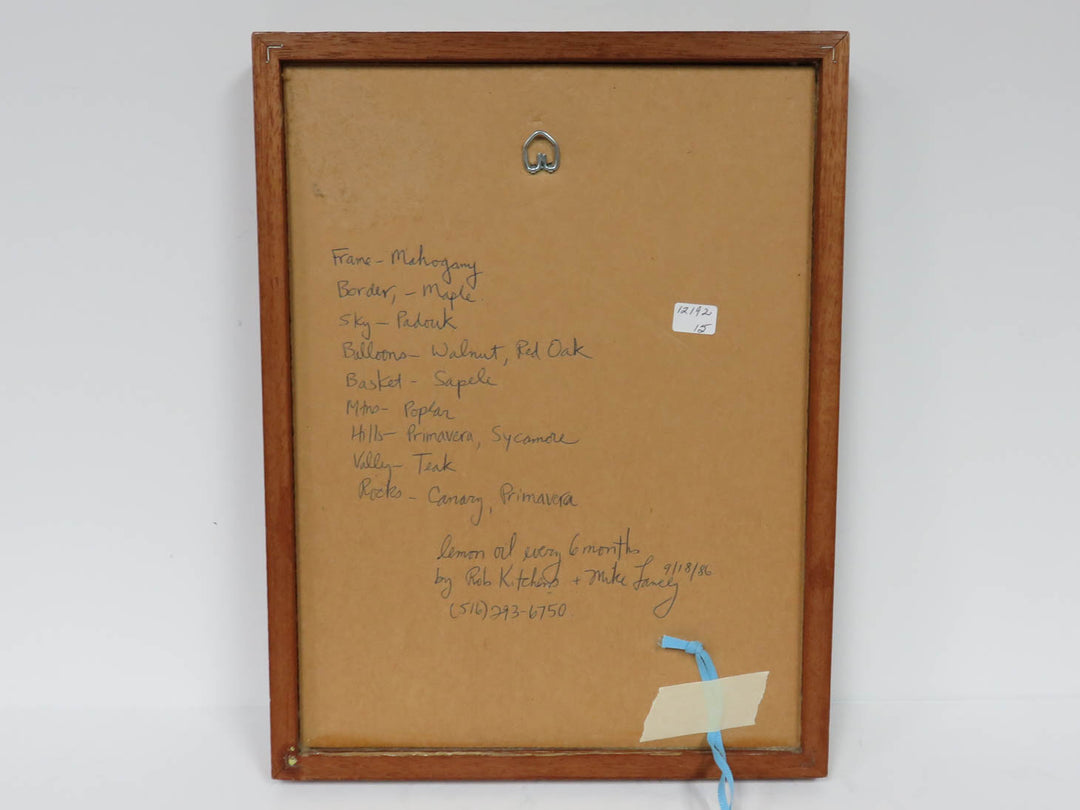 Frame - Mahogany
Border, - Maple.
Sky - Padouk
Balloons - Walnut, Red Oak
Basket - Sapele
Mtns - Poplar
Hills - Primavera, Sycamore
Valley - Teak
Rocks - Canary, Primavera
lemon oil every 6 months
by Rob Kitchens + Mike 9/18/86
(516) 293-6750
12192
15